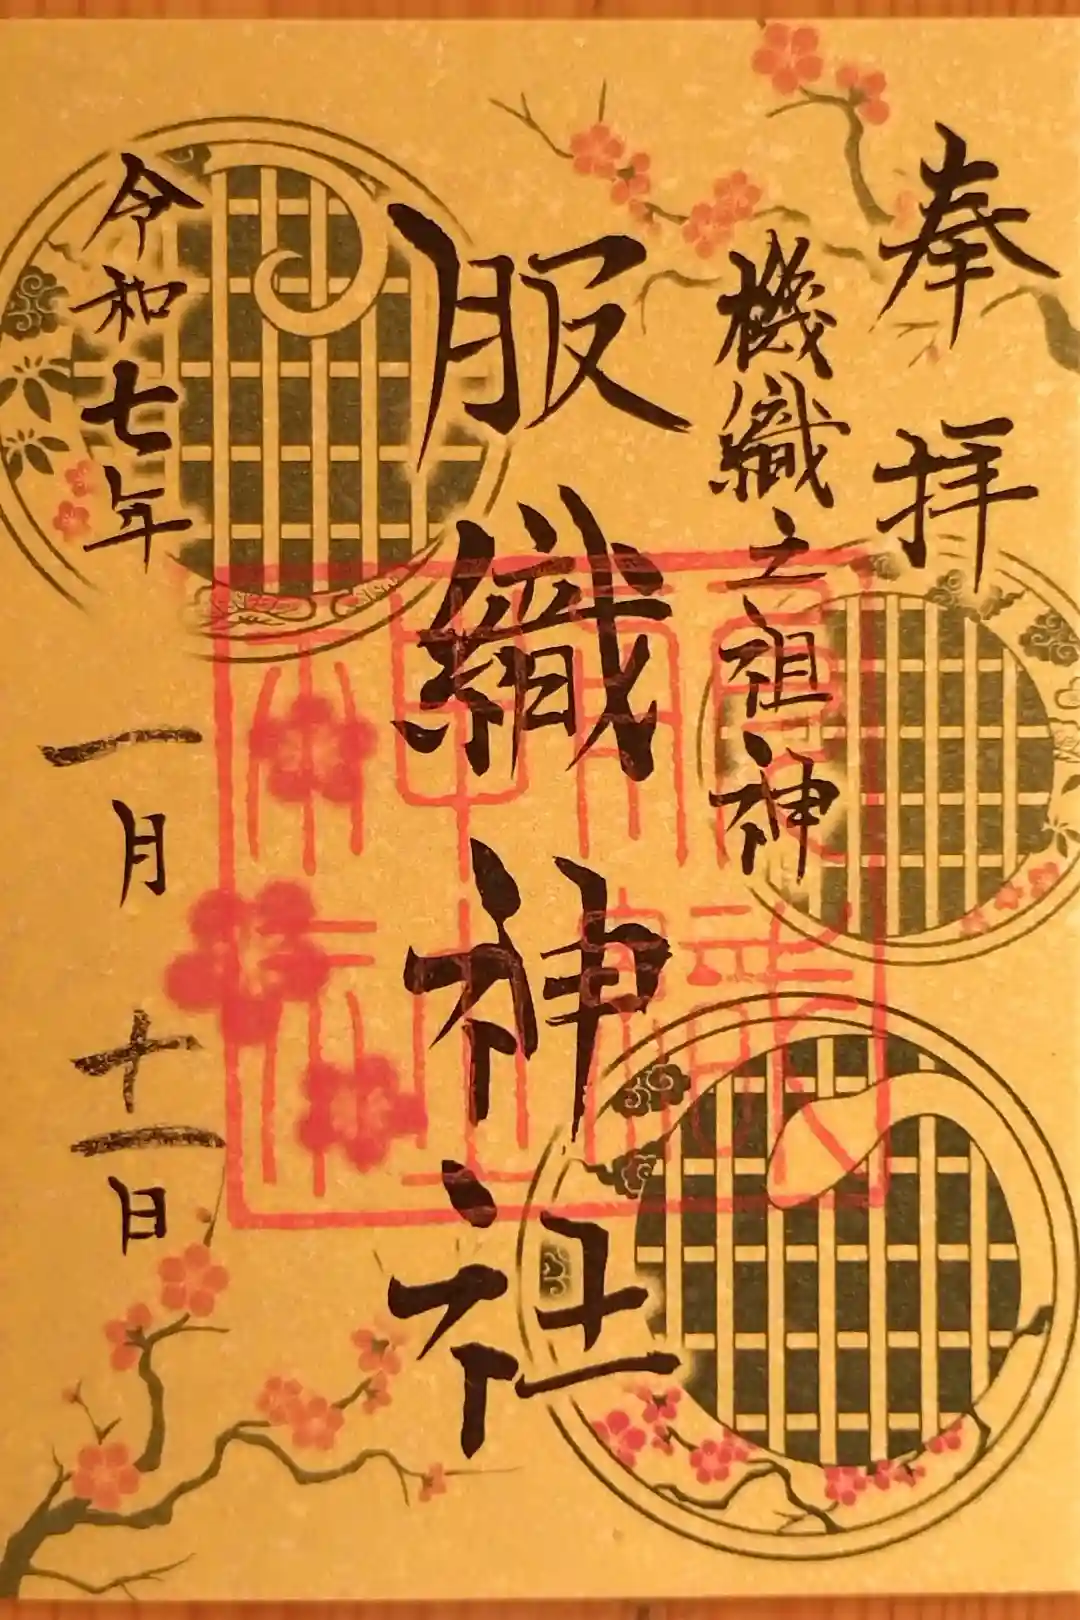 奉拝
機織之祖神
服織神社
令和七年一月十一日